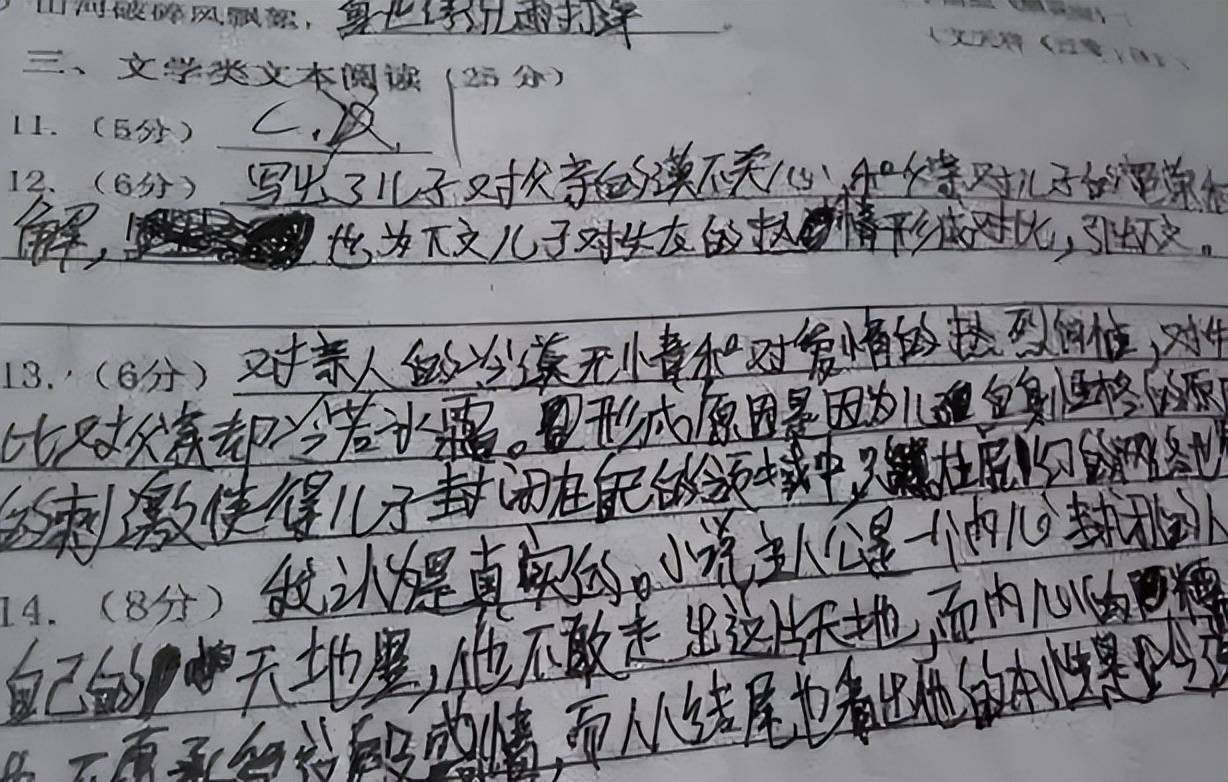 山河破碎风飘絮，身世浮沉雨打萍
三、文学类文本阅读（25 分）
11.（5分） C.D
12.（6分） 写出了儿子对父亲的漠不关心，和父亲对儿子的
解， 也为下文儿子对女友的热情形成对比，引出下文。
13.（6分） 对亲人的冷漠无情和对爱情的热烈
比对父亲却冷若冰霜。形成原因是因为儿 自身性格的原
的刺激使得儿子封闭在自己的领域中，只 在虚幻的网络世
14.（8分） 我认为是真实的。小说主人公是一个内心封闭
自己的 天地里，他不敢走出这片天地，而内心
不愿承 这段感情，而从结尾也看出他的本性是